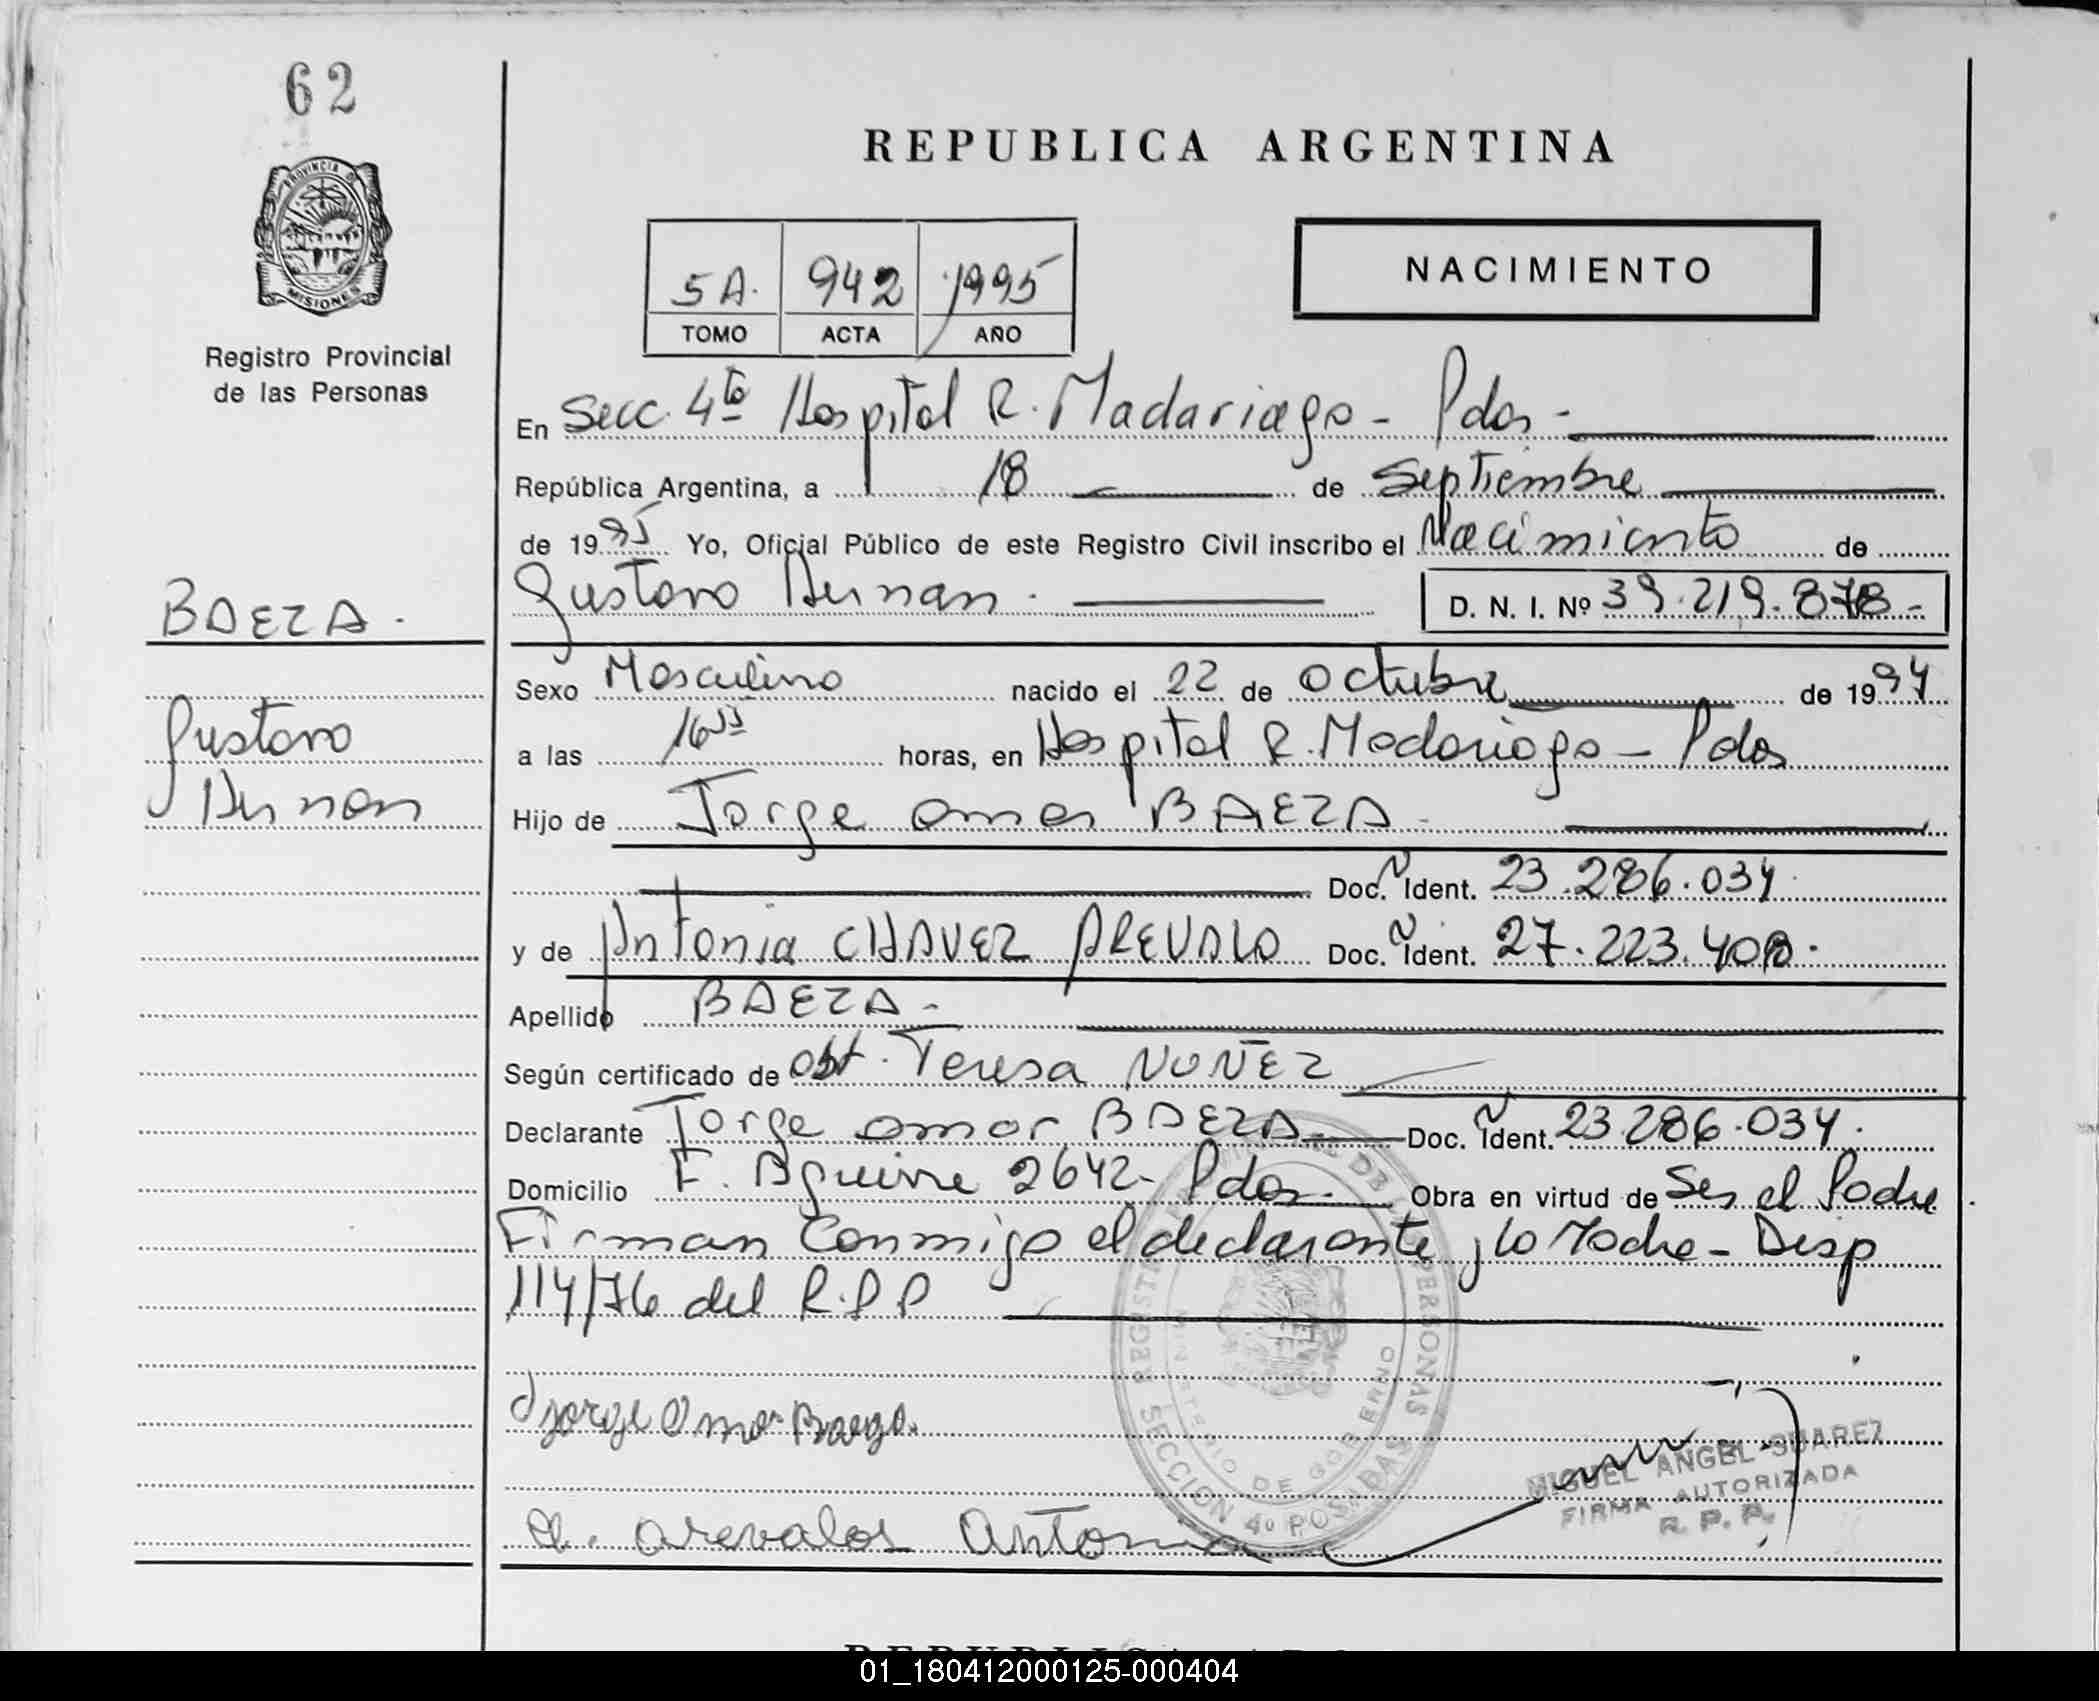 62
PROVINCIA DE
MISIONES
Registro Provincial
de las Personas
REPUBLICA ARGENTINA
5A. 942 1995
TOMO ACTA AÑO
NACIMIENTO
En Secc. 4to Hospital R. Madariaga - Pdas -
República Argentina, a 18 de Septiembre
de 1995 Yo, Oficial Público de este Registro Civil inscribo el Nacimiento de
Gustavo Hernan. D. N. I. Nº 39.219.878-
BAEZA.
Gustavo
Hernan
Sexo Masculino nacido el 22 de Octubre de 1994
a las 16 horas, en Hospital R. Madariaga - Pdas
Hijo de Jorge Omar BAEZA.
Doc. Ident. 23.286.034.
y de Antonia CHAVEZ AREVALO Doc. Ident. 27.223.408.
Apellido BAEZA.-
Según certificado de Obst. Teresa NUÑEZ
Declarante Jorge Omar BAEZA Doc. Ident. 23.286.034.
Domicilio F. Aguirre 2642- Pdas. Obra en virtud de Ser el Padre
Firman Conmigo el declarante y la Madre - Disp
114/76 del R.P.P
Jorge Omar Baeza.
Ch. Arevalos Antonia
REGISTRO PROVINCIAL DE LAS PERSONAS
MINISTERIO DE GOBIERNO
SECCION 4º POSADAS
MIGUEL ANGEL SUAREZ
FIRMA AUTORIZADA
R. P. P.
01_180412000125-000404